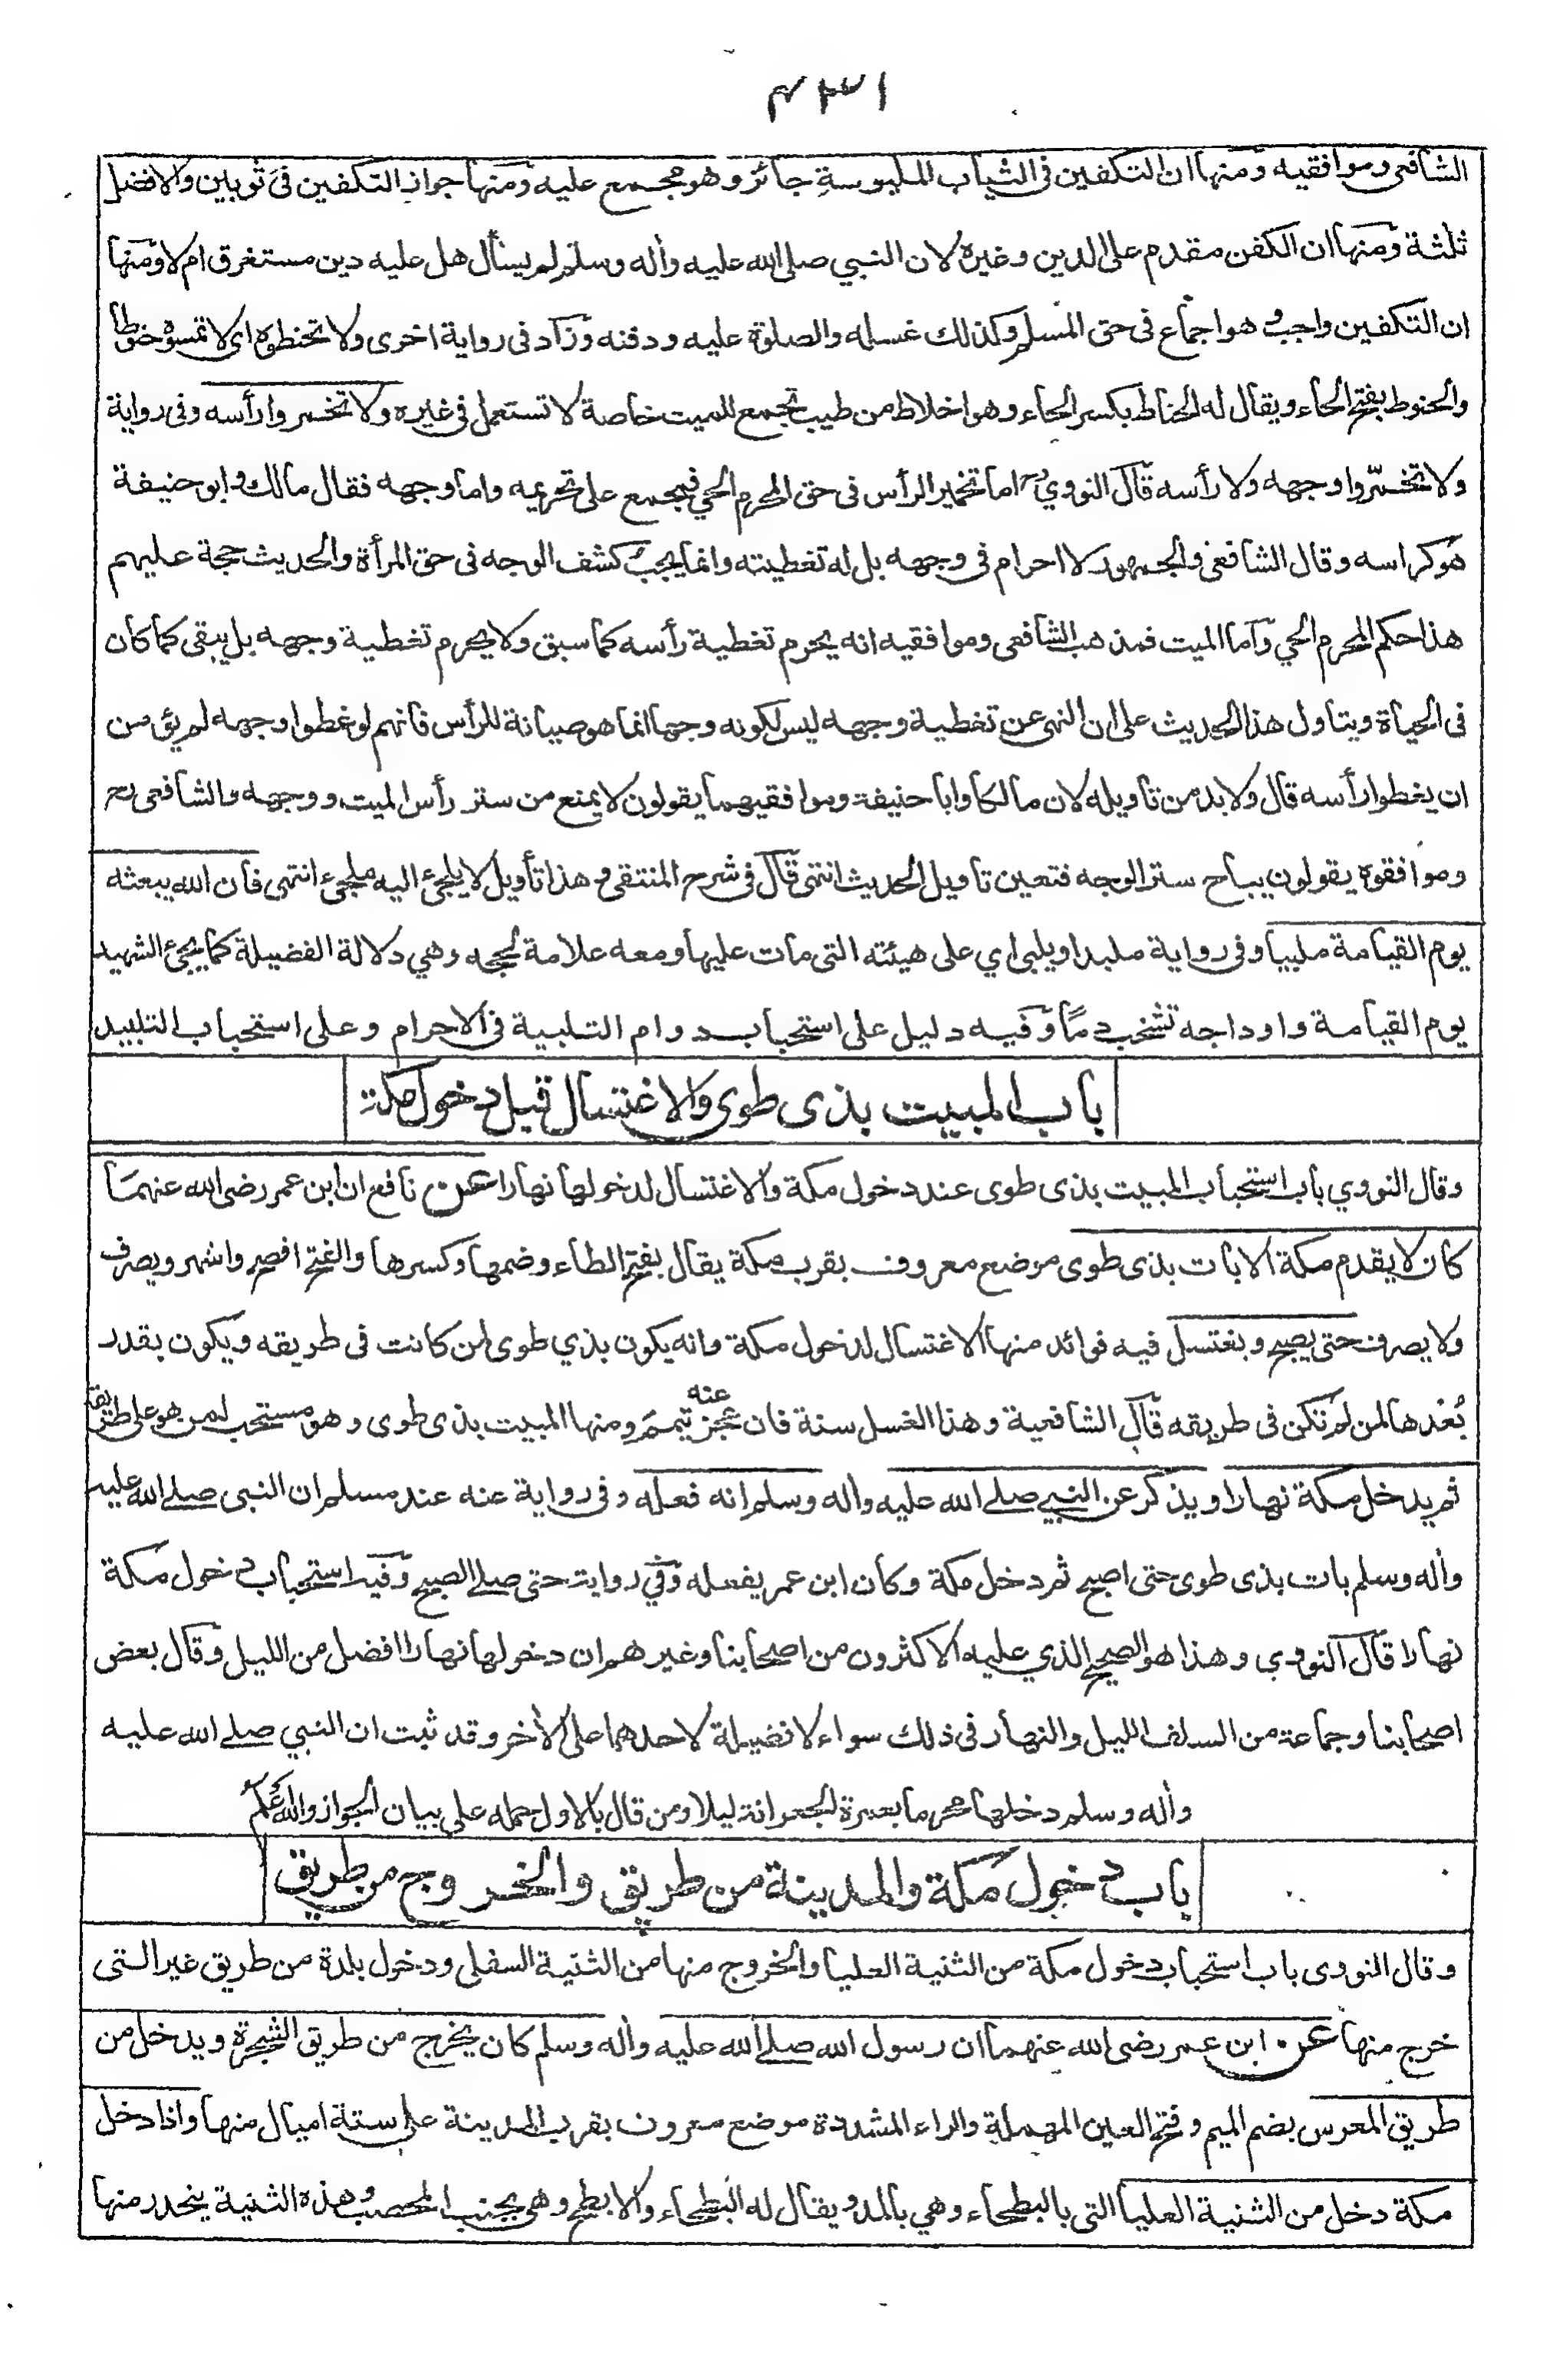 ٤٣١
الشافعي وموافقيه ومنها ان التكفين في الثياب الملبوسة جائز وهو مجمع عليه ومنها جواز التكفين في ثوبين والافضل
ثلثة ومنها ان الكفن مقدم على الدين وغيره لان النبي صلى الله عليه وأله وسلم لم يسأل هل عليه دين مستغرق ام لا ومنها
ان التكفين واجب وهو اجماع في حق المسلم وكذلك غسله والصلوة عليه ودفنه وزاد في رواية اخرى ولا تحنطوه اي لا تمسوه حنوطا
والحنوط بفتح الحاء ويقال له الحناط بكسر الحاء وهو اخلاط من طيب تجمع للميت خاصة لا تستعمل في غيره ولا تخمروا رأسه وفي رواية
ولا تخمّروا وجهه ولا رأسه قال النووي رح اما تخمير الرأس في حق المحرم الحي فمجمع على تحريمه واما وجهه فقال مالك وابو حنيفة
هو كراسه وقال الشافعي والجمهور لا احرام في وجهه بل له تغطيته وانما يجب كشف الوجه في حق المرأة والحديث حجة عليهم
هذا حكم المحرم الحي وأما الميت فمذهب الشافعي وموافقيه انه يحرم تغطية رأسه كما سبق ولا يحرم تغطية وجهه بل يبقى كما كان
في الحياة ويتاول هذا الحديث على ان النهي عن تغطية وجهه ليس لكونه وجها انما هو صيانة للرأس فانهم لو غطوا وجهه لم يؤمن
ان يغطوا رأسه قال ولا بد من تاويله لان مالكا وابا حنيفة وموافقيهما يقولون لا يمنع من ستر رأس الميت ووجهه والشافعي رح
وموافقوه يقولون يباح ستر الوجه فتعين تاويل الحديث انتهى قال في شرح المنتقى وهذا تأويل لا يلجئ اليه ملجئ انتهى فان الله يبعثه
يوم القيامة ملبيا وفي رواية ملبدا ويلبي اي على هيئته التي مات عليها ومعه علامة لحجه وهي دلالة الفضيلة كما يجئ الشهيد
يوم القيامة واوداجه تشخب دمًا وفيه دليل على استحباب دوام التلبية في الاحرام وعلى استحباب التلبيد
باب المبيت بذى طوى والاغتسال قبل دخول مكة
وقال النووي باب استحباب المبيت بذى طوى عند دخول مكة والاغتسال لدخولها نهارا عن نافع ان ابن عمر رضى الله عنهما
كان لا يقدم مكة الا بات بذى طوى موضع معروف بقرب مكة يقال بفتح الطاء وضمها وكسرها والفتح افصح واشهر ويصرف
ولا يصرف حتى يصبح ويغتسل فيه فوائد منها الاغتسال لدخول مكة وانه يكون بذي طوى لمن كانت في طريقه ويكون بقدر
بُعْدها لمن لم تكن في طريقه قال الشافعية وهذا الغسل سنة فان عجز عنه تيمم ومنها المبيت بذى طوى وهو مستحب لمن هو على طريقه
ثم يدخل مكة نهارا ويذكر عن النبي صلے الله عليه وأله وسلم انه فعله وفي رواية عنه عند مسلم ان النبي صلے الله عليه
وأله وسلم بات بذى طوى حتى اصبح ثم دخل مكة وكان ابن عمر يفعله وفي رواية حتى صلے الصبح وفيه استحباب دخول مكة
نهارا قال النووي وهذا هو الصحيح الذي عليه الاكثرون من اصحابنا وغيرهم ان دخولها نهارا افضل من الليل وقال بعض
اصحابنا وجماعة من السلف الليل والنهار في ذلك سواء لا فضيلة لاحدهما على الأخر وقد ثبت ان النبي صلے الله عليه
وأله وسلم دخلها محرما بعمرة الجعرانة ليلا ومن قال بالاول حمله على بيان الجواز والله اعلم
باب دخول مكة والمدينة من طريق والخروج من طريق
وقال النووى باب استحباب دخول مكة من الثنية العليا والخروج منها من الثنية السفلى ودخول بلدة من طريق غير التى
خرج منها عن ابن عمر رضى الله عنهما ان رسول الله صلے الله عليه وأله وسلم كان يخرج من طريق الشجرة ويدخل من
طريق المعرس بضم الميم وفتح العين المهملة والراء المشددة موضع معروف بقرب المدينة على ستة اميال منها واذا دخل
مكة دخل من الثنية العليا التى بالبطحاء وهي بالمد ويقال له البطحاء والابطح وهي بجنب المحصب وهذه الثنية ينحدر منها